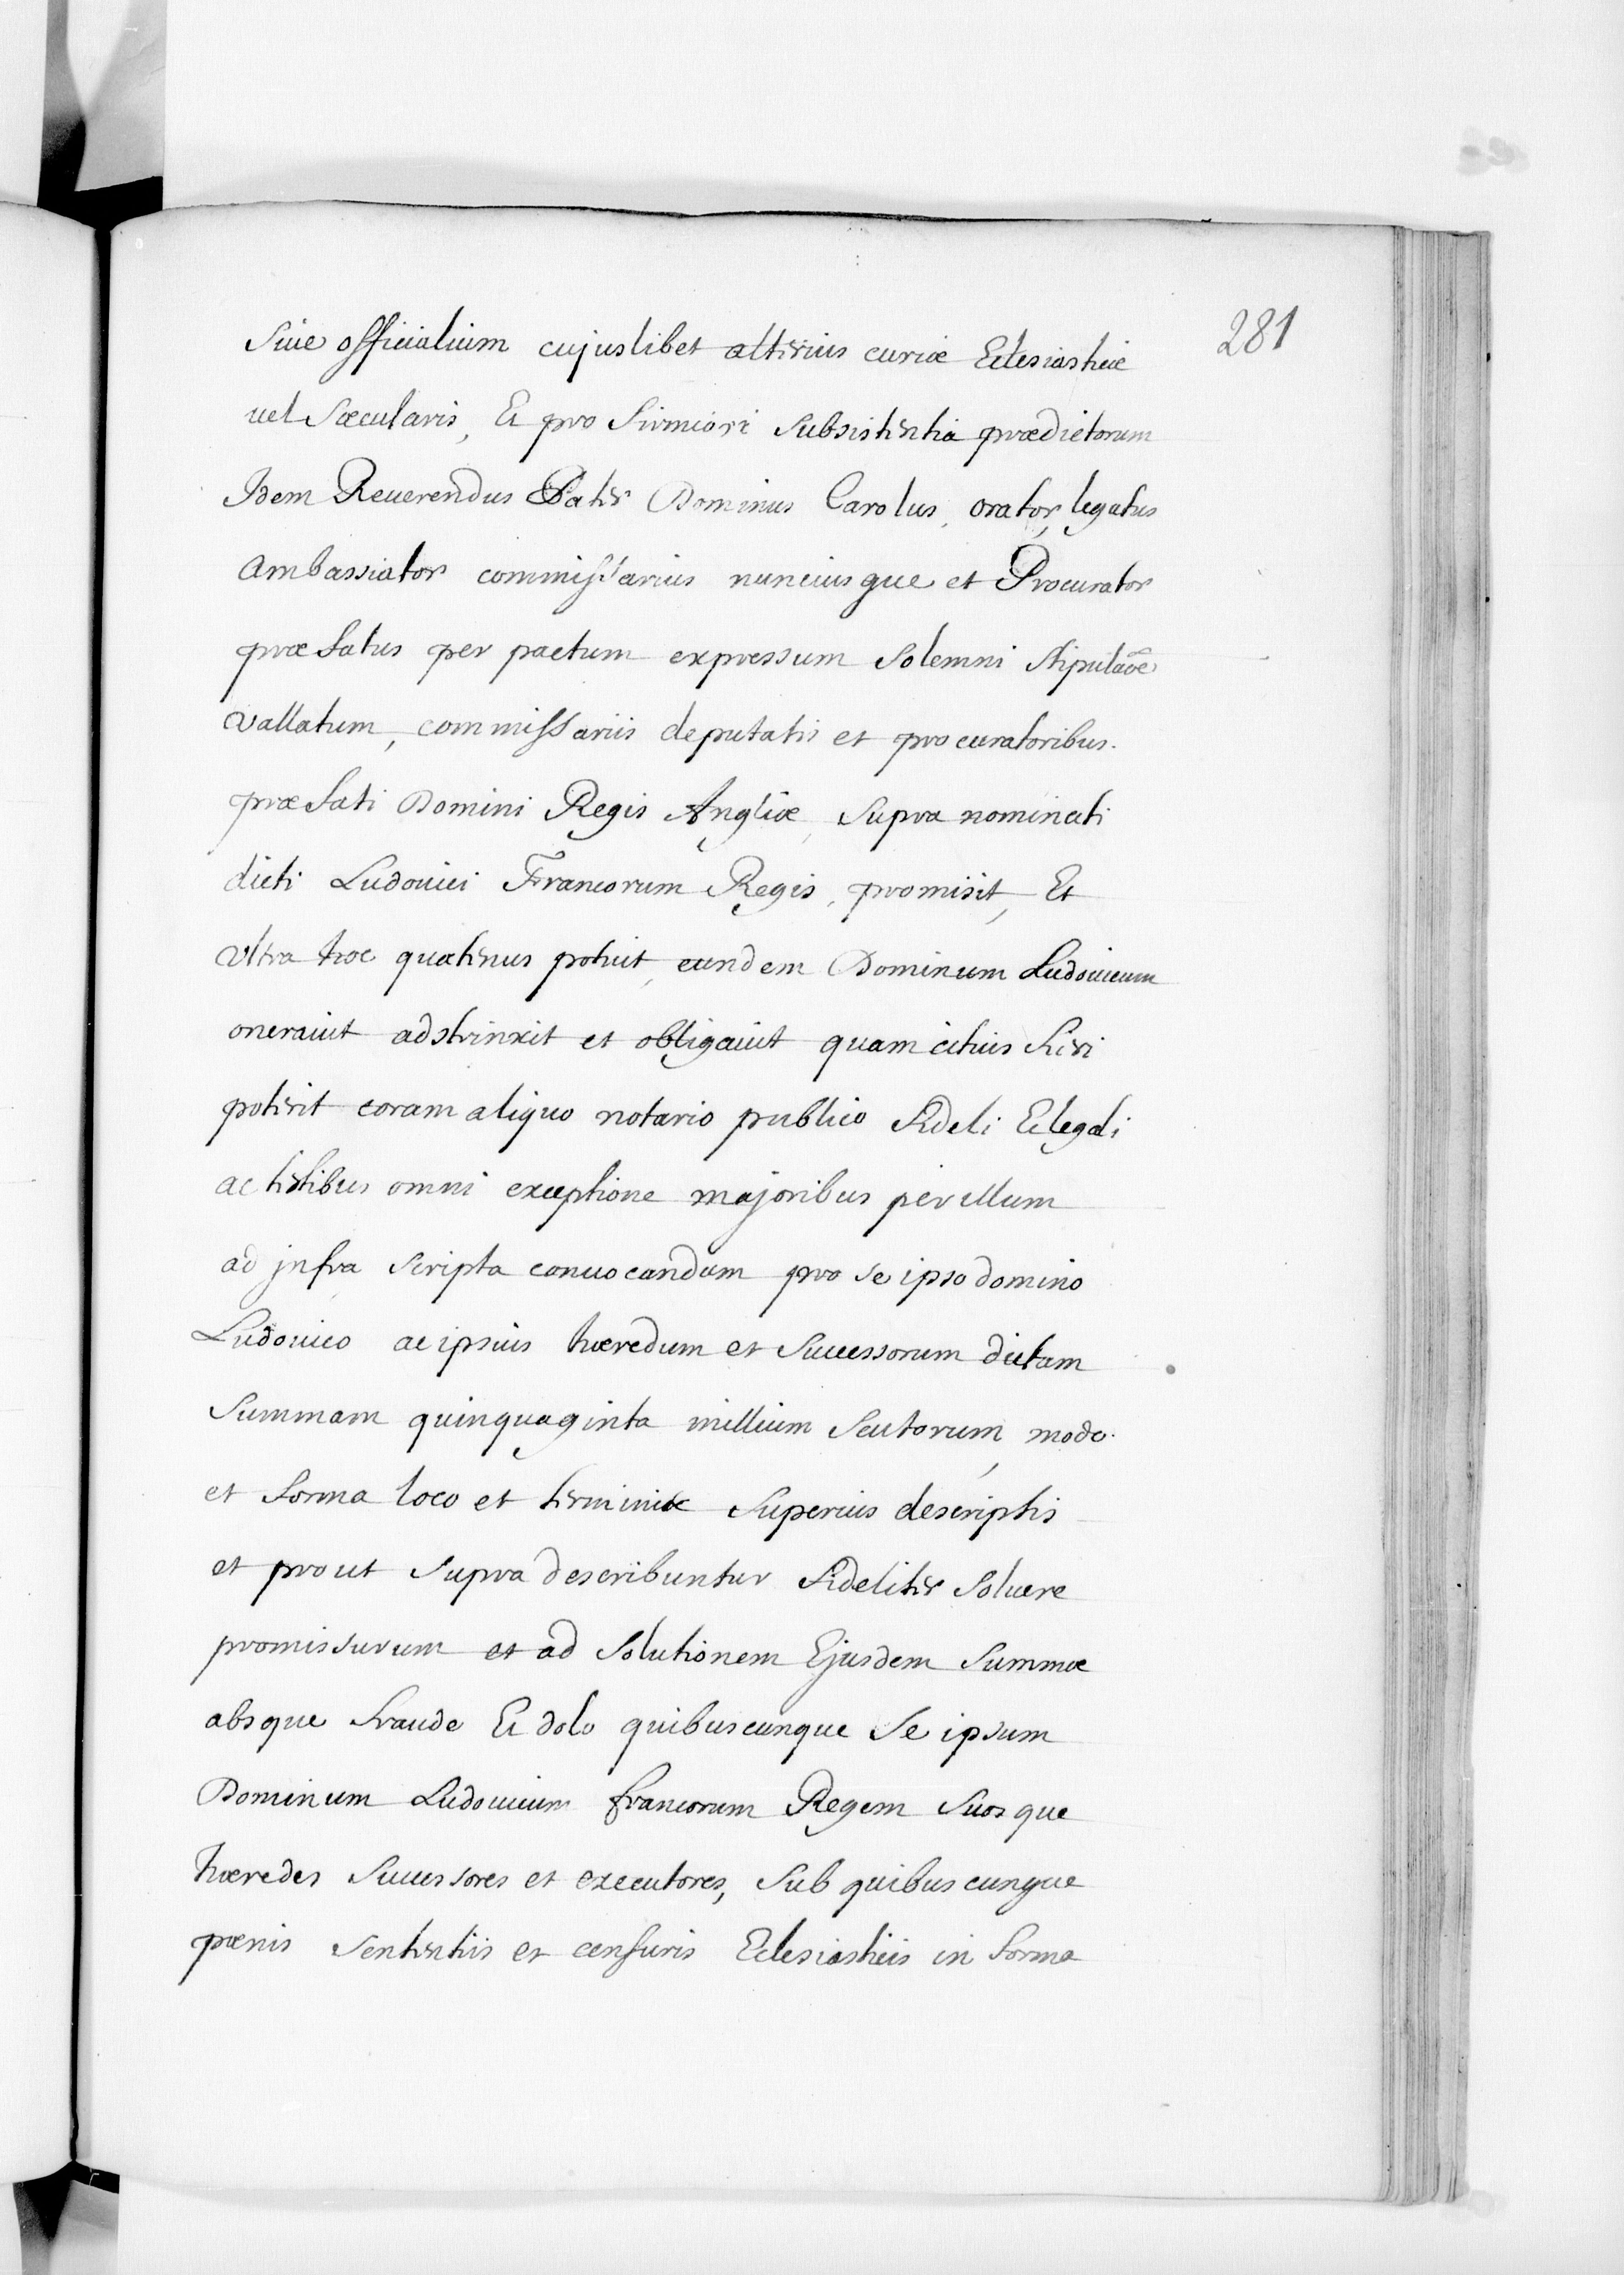 281
Siue officialium cujuslibet alterius curiæ Eclesiasticæ
uel Sæcularis, Et pro firmiori Subsistentia prædictorum
Idem Reuerendus Pater Dominus Carolus, orator, legatus
Ambassiator commissarius nunciusque et Procurator
præfatus per pactum expressum Solemni Stipulaõe
Vallatum, commissariis deputatis et procuratoribus.
præfati Domini Regis Angliæ, Supra nominati
dicti Ludouici Francorum Regis, promisit, Et
Vltra hoc quatenus potuit, eundem Dominum Ludouicum
onerauit adstrinxit et obligauit quam citius fieri
poterit coram aliquo notario publico fideli Et legali
ac testibus omni exceptione majoribus per illum
ad jnfra Scripta conuocandum pro se ipso domino
Ludouico ac ipsius hæredum et Successorum dictam
Summam quinquaginta millium Scutorum, modo.
et forma loco et terminis Superius descriptis
et prout Supra describuntur fideliter Soluere
promissurum et ad Solutionem Ejusdem Summæ
absque fraude Et dolo quibuscunque Se ipsum
Dominum Ludouicum francorum Regem Suosque
hæredes Successores et executores, Sub quibuscunque
pænis Sententiis et censuris Eclesiasticis in forma